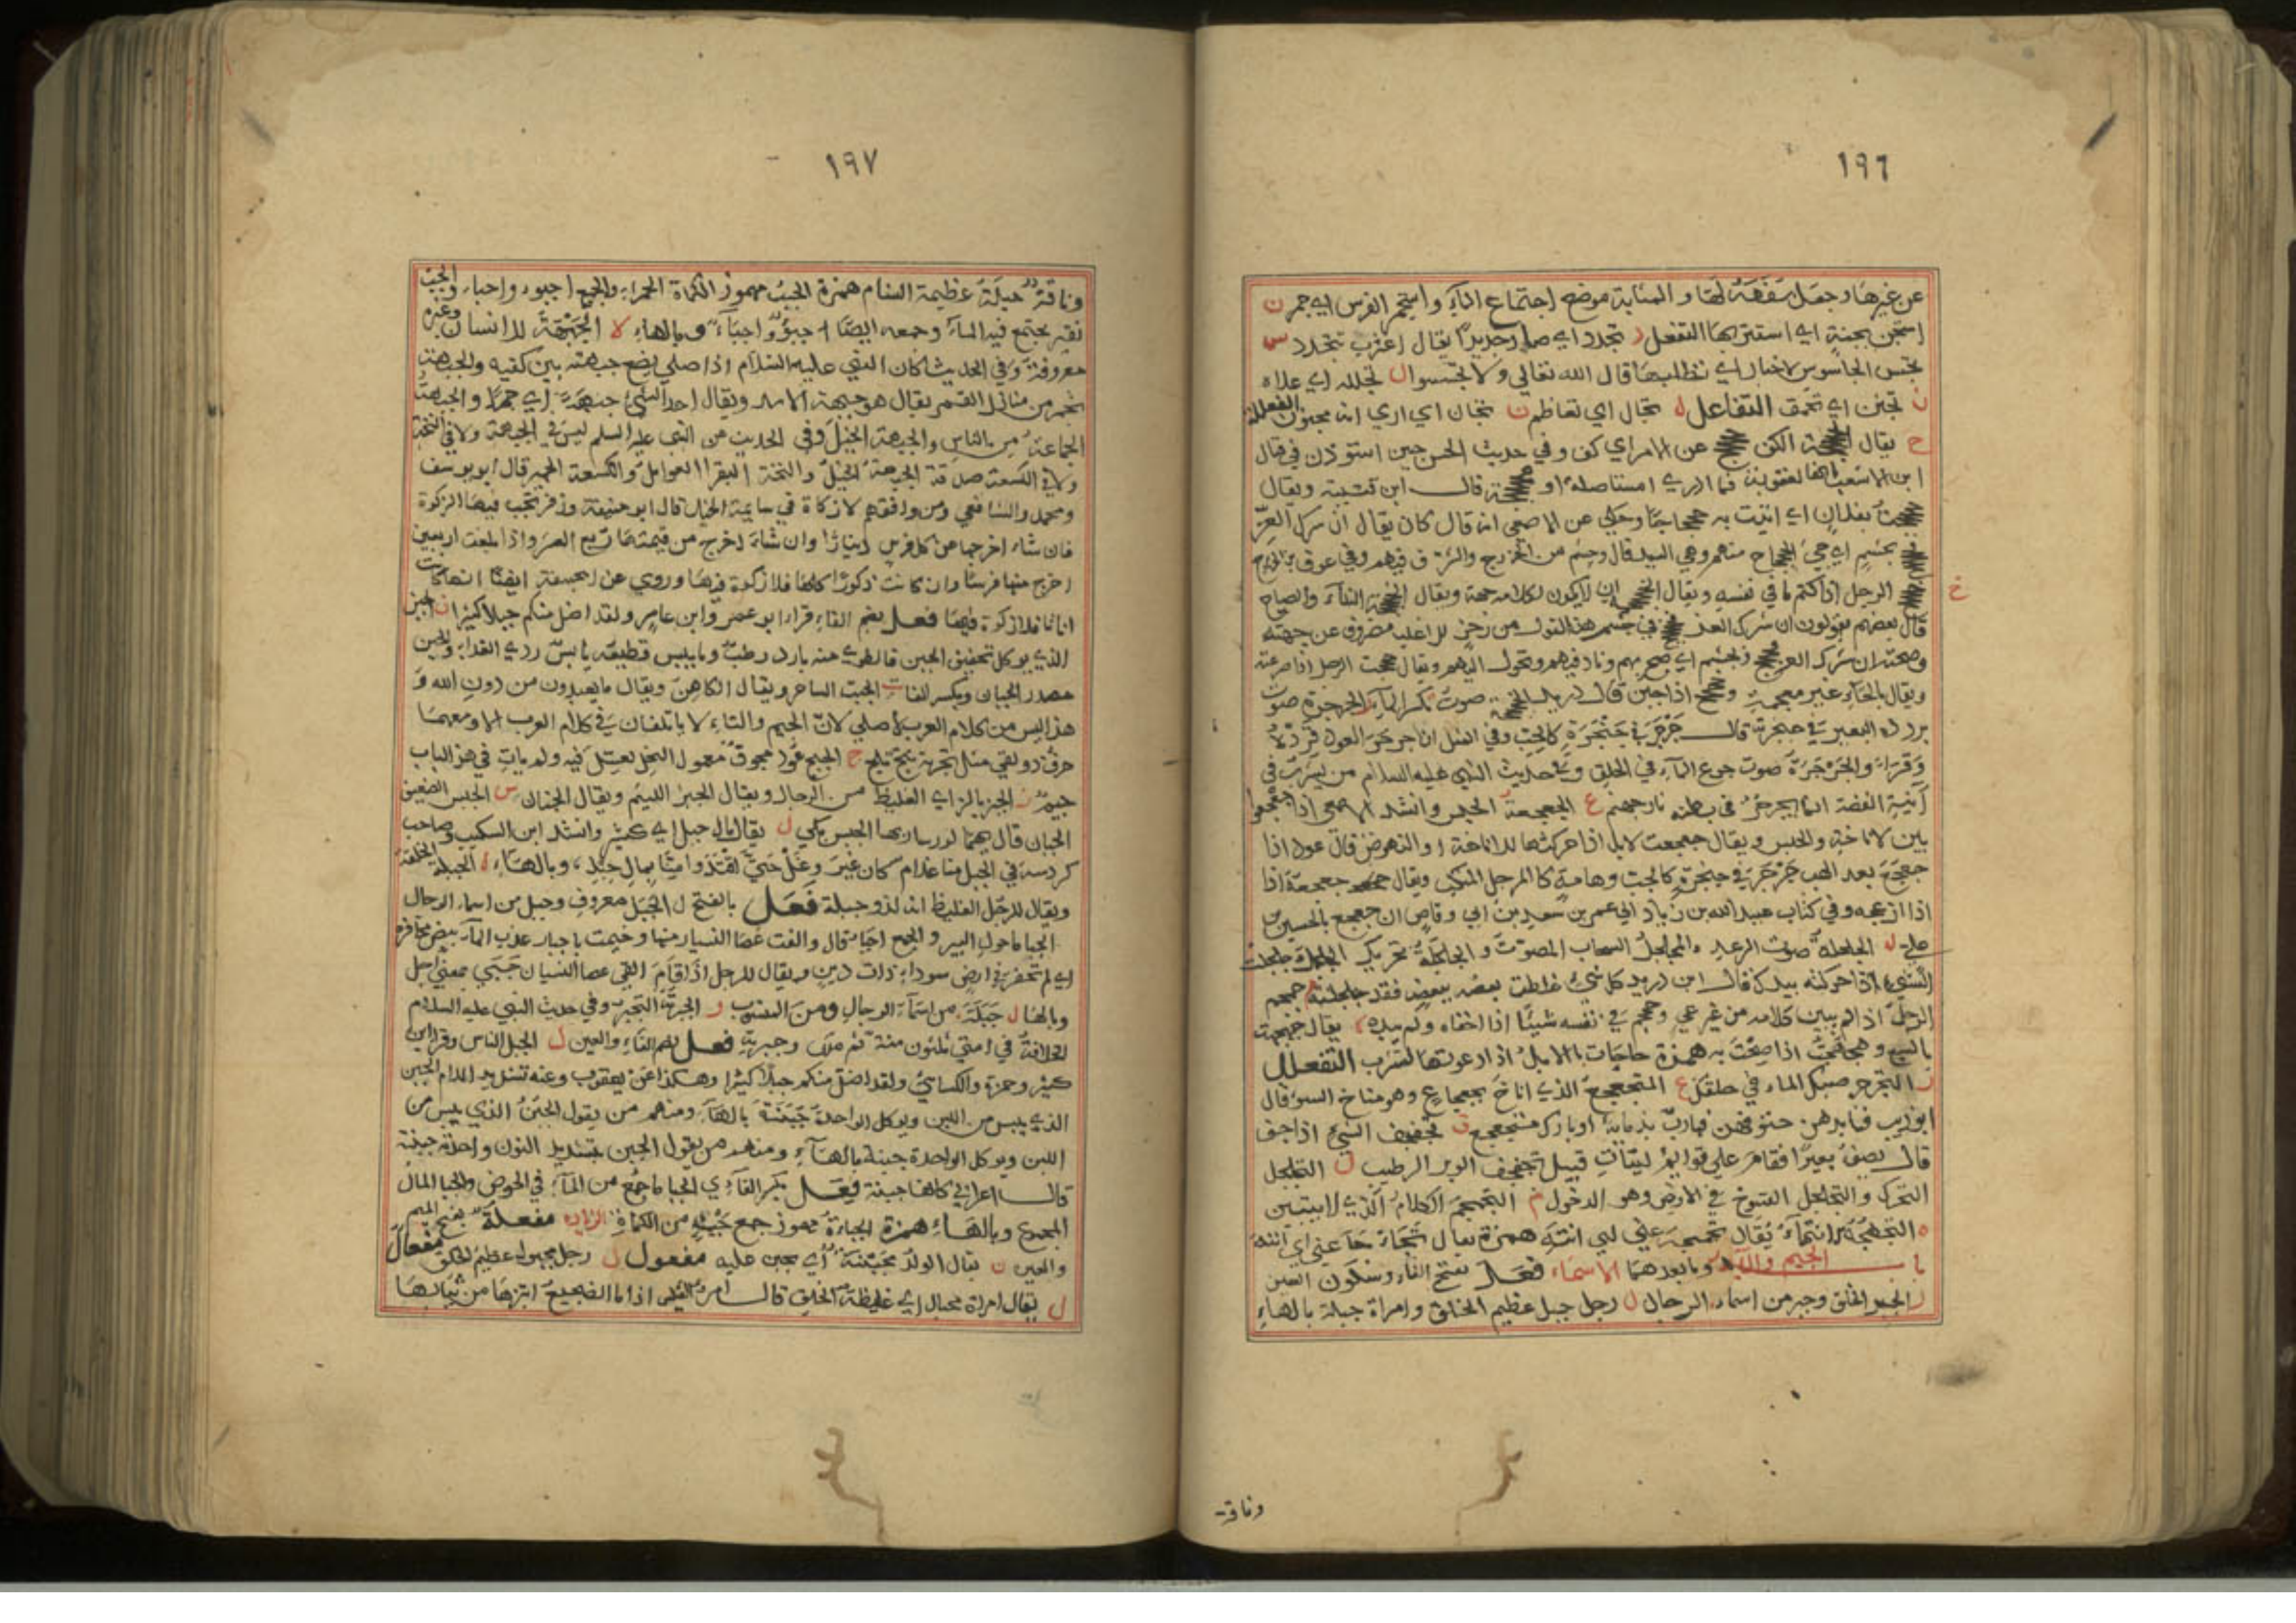 ١٩٦
عن غيرها وجعل سفهه لها و المثابة موضع اجتماع المآء و استجمر الفرس اي جمر ن
استجن بجنة اي استتر بها التفعل د تجدد اي صار جديدًا يقال اعزب تجدد س
تجسس الجاسوس الاخبار اي تطلبها قال الله تعالي ولا تجسسوا ل تجلله اي علاه
ن تجنن اي تحمق التفاعل ل تجال اي تعاظم ن تجان اي اري انه مجنون الفعللة
ح يقال الكف عن الامر اي كف وفي حديث الحسن حين استؤذن في قتال
ابن الاشعث انها لعقوبة فما ادري امستاصلة او قال ابن قتيبة ويقال
بفلان اي اتيت به حجاجا وحكي عن الاصمعي انه قال كان يقال ان شرك العز
بجشم اي جئ الجحجاح منهم وهي السيد قال وجشم من الخزرج والشرف فيهم وفي عوف بن الخزرج
خ الرجل اذا كتم ما في نفسه ويقال ان لا يكون لكلامه جهة ويقال النداء والصياح
قال بعضهم يقولون ان شرك العز في جشم هذا القول من رجز للاغلب مصروف عن جهته
وصحته ان شرك العز فجشم اي صح بهم وناد فيهم وتحول اليهم ويقال الرجل اذا صرعته
ويقال بالخاء غير معجمة و اذا جبن قال دريد صوت تكسر المآء ر الجرجرة صوت
يردده البعير في حنجرته قال جرجر في حنجرة كالحب وفي المثل ان جرجر العود فزده
وقرا والجرجرة صوت جرع المآء في الحلق وفي حديث النبي عليه السلام من يشرب في
آنية الفضة انما يجرجر في بطنه نار جهنم ع الجعجعة الحبس وانشد الاصمعي اذا جعجعوا
بين الاناخة والحبس ويقال جعجعت الابل اذا حركتها للاناخة او النهوض قال عود اذا
جعجع بعد الهب جرجر في حنجرة كالجب وهامة كالمرجل المنكب ويقال جعجعة اذا
اذا ازعجه وفي كتاب عبيد الله بن زياد الي عمر بن سعيد بن ابي وقاص ان جعجع بالحسين بن
علي ل الجلجلة صوت الرعد والمجلجل السحاب المصوت و الجلجلة تحريك الجلجلة جلجلت
الشئ اذا حركته بيدك قال ابن دريد كل شئ غلطت بعضه ببعض فقد جلجلته م جمجم
الرجل اذا لم يبين كلامه من غير عي وجمجم في نفسه شيئًا اذا اخفاه ولم يبده ه يقال جهجهت
بالسبع وهجهجت اذا صحت به همزة جاجات بالابل اذا دعوتها لتشرب التفعلل
ر التجرجر صبك الماء في حلقك ع المتجعجع الذي اناخ بجعجاع وهو مناخ السوء قال
ابو ذيب فابدهن حتوفهن فهارب بذمائه او بارك متجعجع ف تجفجف الشئ اذا جف
قال يصف بعيرًا فقام علي قوايم لينات قبيل تجفجف الوبر الرطيب ل التجلجل
التحرك والتجلجل السوخ في الارض وهو الدخول م التجمجم الكلام الذي لا يتبين
ه التجهجه الانتهاء يقال تجهجه عني اي انته همزة يقال تجاجا عني اي انته
باب الجيم والباء وما بعدهما الاسماء فعل بفتح الفاء وسكون العين
ر الجبر الخلق وجبر من اسماء الرجال ل رجل جبل عظيم الخلق وامراة جبلة بالهاء
وناقة
١٩٧
وناقة جبلة عظيمة السنام همزة الجبء مهموز الكماة الحمراء والجمع اجبوء واجباء والجبء
نقير يجتمع فيه المآء وجمعه ايضًا اجبؤ واجبآء وبالهاء لا الجبهة للانسان وغيره
معروفة وفي الحديث كان النبي عليه السلام اذا صلي يضع جبهته بين كفيه والجبهة
نجم من منازل القمر يقال هو جبهة الاسد ويقال اخذ الشئ جبهة اي جهرا والجبهة
الجماعة من الناس والجبهة الخيل وفي الحديث عن النبي عليه السلم ليس في الجبهة ولا في النخة
ولا في الكسعة صدقة الجبهة الخيل والنخة البقر العوامل والكسعة الحمير قال ابو يوسف
ومحمد والشافعي ومن وافقهم لا زكاة في سايمة الخيل قال ابو حنيفة وزفر تجب فيها الزكوة
فان شاء اخرجها عن كل فرس دينارًا وان شاء اخرج من قيمتها ربع العشر واذا بلغت اربعين
اخرج منها فرسا وان كانت ذكورًا كلها فلا زكوة فيها وروي عن ابي حنيفة ايضًا انها كانت
اناثا فلا زكوة فيها فعل بضم الفاء قرا ابو عمرو وابن عامر ولقد اضل منكم جبلا كثيرا ن الجبن
الذي يوكل بتحفيف الجبن فالطري منه بارد رطب وما يبس فطبيعته يابس ردي الغذاء والجبن
مصدر الجبان وبكسر الفا ت الجبت الساحر ويقال الكاهن ويقال ما يعبدون من دون الله و
هذا ليس من كلام العرب الاصلي لان الجيم والتاء لا ياتلفان في كلام العرب الا ومعهما
حرف ذولقي مثل تجربة تبح تبلج ح الجبح عود مجوف معمول النحل يعسل فيه ولم يات في هذا الباب
جيم ز الجبز بالزاي الغليظ من الرجال ويقال الجبز اللئيم ويقال الجبان س الجبس الضعيف
الجبان قال يهما لو رسار بها الجبس بكي ل يقال مال جبل اي كثير وانشد ابن السكيت وصاحب
كردسة في الجبل منا غدام كان غير وغل حتى افتدوا منا بمال جبل، وبالهاء ل الجبلة الخلقة
ويقال للرجل الغليظ انه لذو جبلة فعل بالفتح ل الجبل معروف وجبل من اسماء الرجال
الجبا ما حول البير والجمع اجباء قال والقت عصا التسيار عنها وخيمت باجباء عذب المآء بيض محافره
اي لم تحفر في ارض سوداء ذات دين ويقال للرجل اذا اقام القي عصا التسيار جبي بمعني اجل
وبالهاء ل جبلة من اسماء الرجال ومن المنسوب ر الجبرية التجبر وفي حديث النبي عليه السلام
الخلافة في امتي ثلثون سنة ثم ملك وجبرية فعل بضم الفاء والعين ل الجبل الناس وقرا ابن
كثير وحمزة والكسائي ولقد اضل منكم جبلا كثيرا وهكذا عن يعقوب وعنه تشديد اللام الجبن
الذي يبس من اللبن ويوكل الواحدة جبنة بالهاء ومنهم من يقول الجبن الذي يبس من
اللبن ويوكل الواحدة جبنة بالهاء ومنهم من يقول الجبن بتشديد النون واحدته جبنة
قال اعرابي كانها جبنة فعل بكسر الفاء ي الجبا ما جمع من المآء في الحوض والجبا المال
المجموع وبالهاء همزة الجباة مهموز جمع جبء من الكماة الزيادة مفعلة بفتح الميم
والعين ن يقال الولد مجبنة اي يجبن عليه مفعول ل رجل مجبول عظيم الخلق مفعال
ل يقال امراة مجبال اي غليظة الخلق قال امرؤ القيس اذا ما الضجيع ابتزها من ثيابها